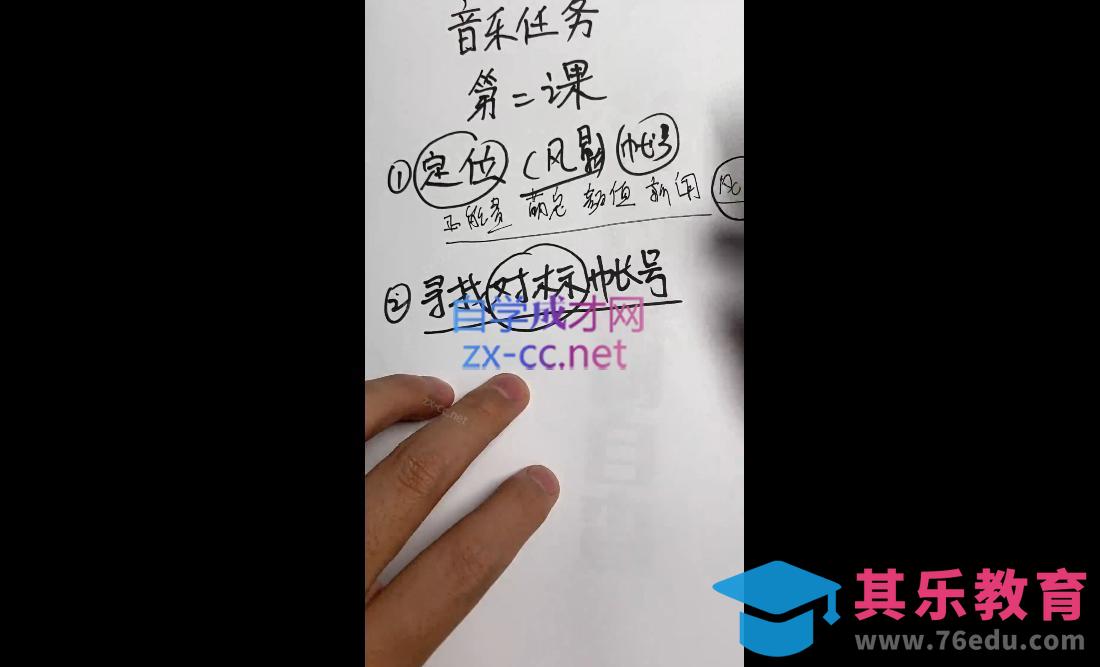 音乐任务
第二课
① 定位 (风景) 帐号
正能量 萌宠 颜值 新闻
② 寻找对标帐号
自学成才网
zx-cc.net
zx-cc.net
其乐教育
www.76edu.com